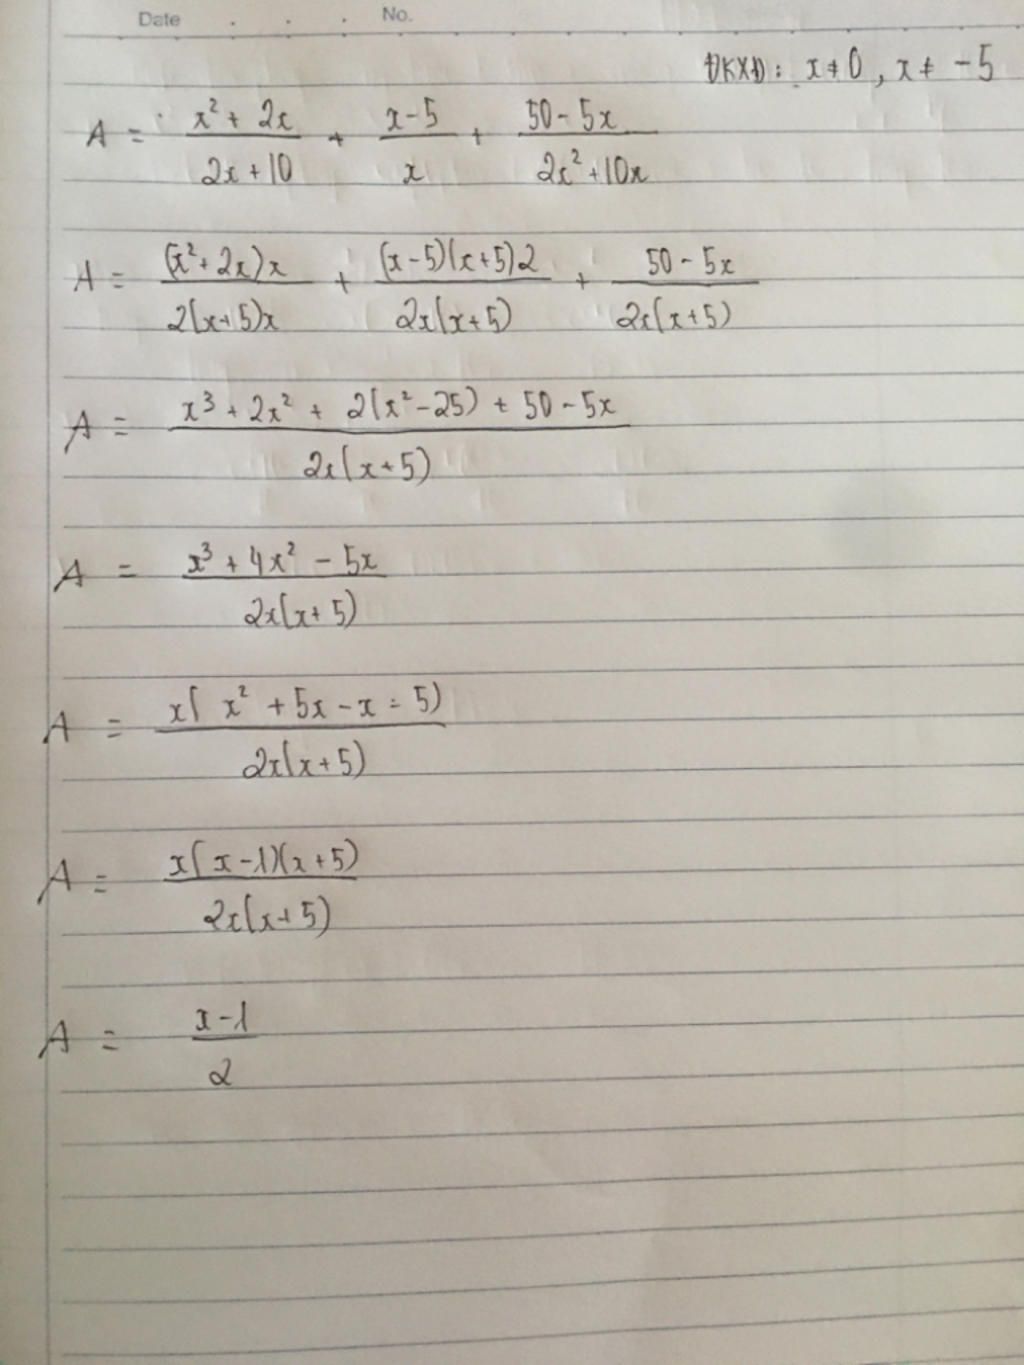 Date . . . No.
ĐKXĐ: x ≠ 0, x ≠ -5
A = (x² + 2x)/(2x + 10) + (x - 5)/x + (50 - 5x)/(2x² + 10x)
A = ((x² + 2x)x)/(2(x + 5)x) + ((x - 5)(x + 5)2)/(2x(x + 5)) + (50 - 5x)/(2x(x + 5))
A = (x³ + 2x² + 2(x² - 25) + 50 - 5x)/(2x(x + 5))
A = (x³ + 4x² - 5x)/(2x(x + 5))
A = (x(x² + 5x - x - 5))/(2x(x + 5))
A = (x(x - 1)(x + 5))/(2x(x + 5))
A = (x - 1)/2